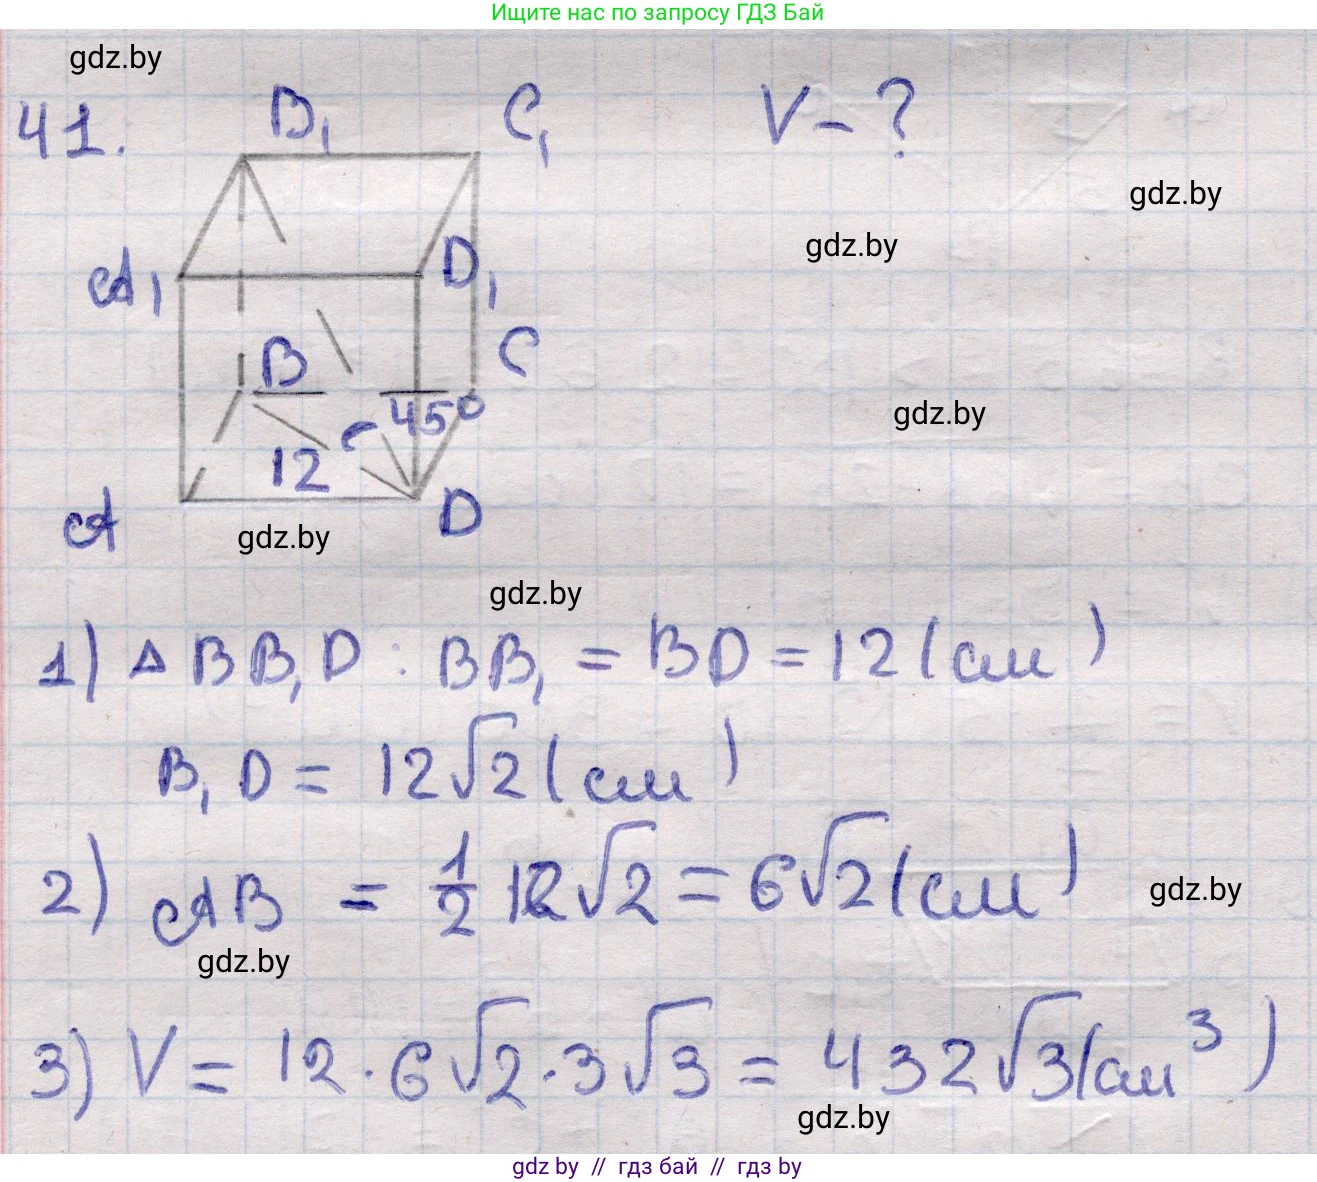 Ищите нас по запросу ГДЗ Бай
gdz.by
41.
B₁
C₁
V - ?
gdz.by
gdz.by
A₁
D₁
B
C
45°
gdz.by
12
A
D
gdz.by
gdz.by
1) △ BB₁D : BB₁ = BD = 12 (см)
B₁D = 12√2 (см)
2) AB = 1/2 12√2 = 6√2 (см)
gdz.by
gdz.by
3) V = 12 · 6√2 · 3√3 = 432√3 (см³)
gdz.by
gdz by // гдз бай // гдз by